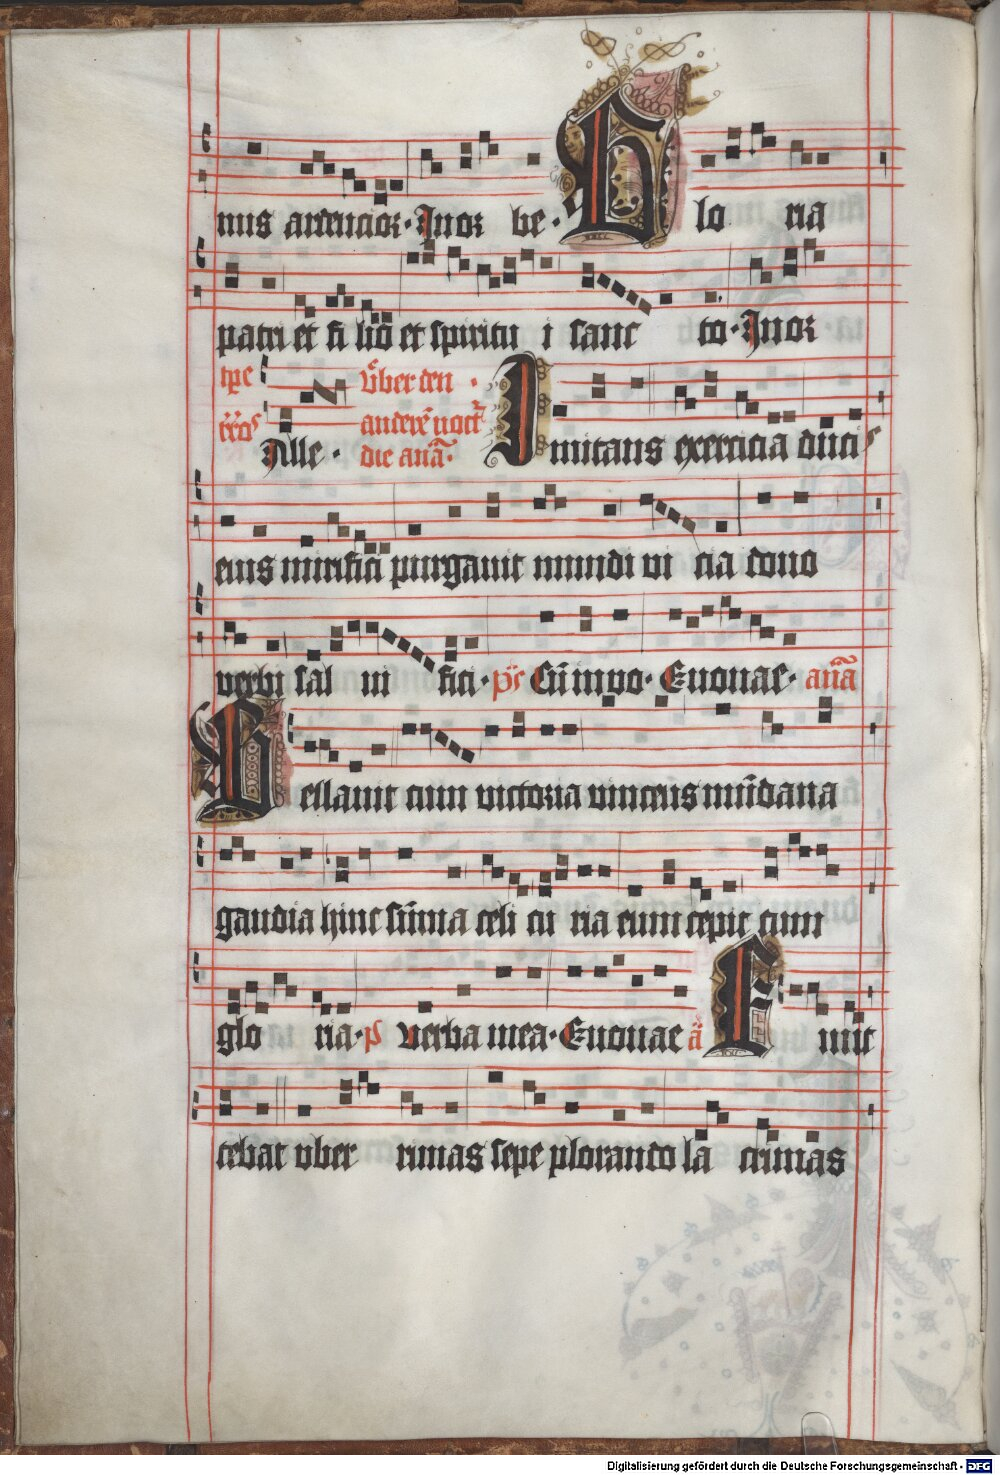 mus ardencior · In or be · G lo ria
patri et fi lio et spiritu i sanc to · In or
tp̄e vb̄er den ·
andere noct
Alle · die anā · Imitans exercicia duci
eius mirifici purgauit mundi vi cia dono
verbi sal ui fici · ps Cū inuo · Euouae · anā
Bellauit cum victoria vincens mūdana
gaudia hinc sūma celi cu ria eum cepit cum
glo ria · p̄ Verba mea · Euouae ā E mit
tebat vber rimas sepe plorando la crimas
Digitalisierung gefördert durch die Deutsche Forschungsgemeinschaft - DFG